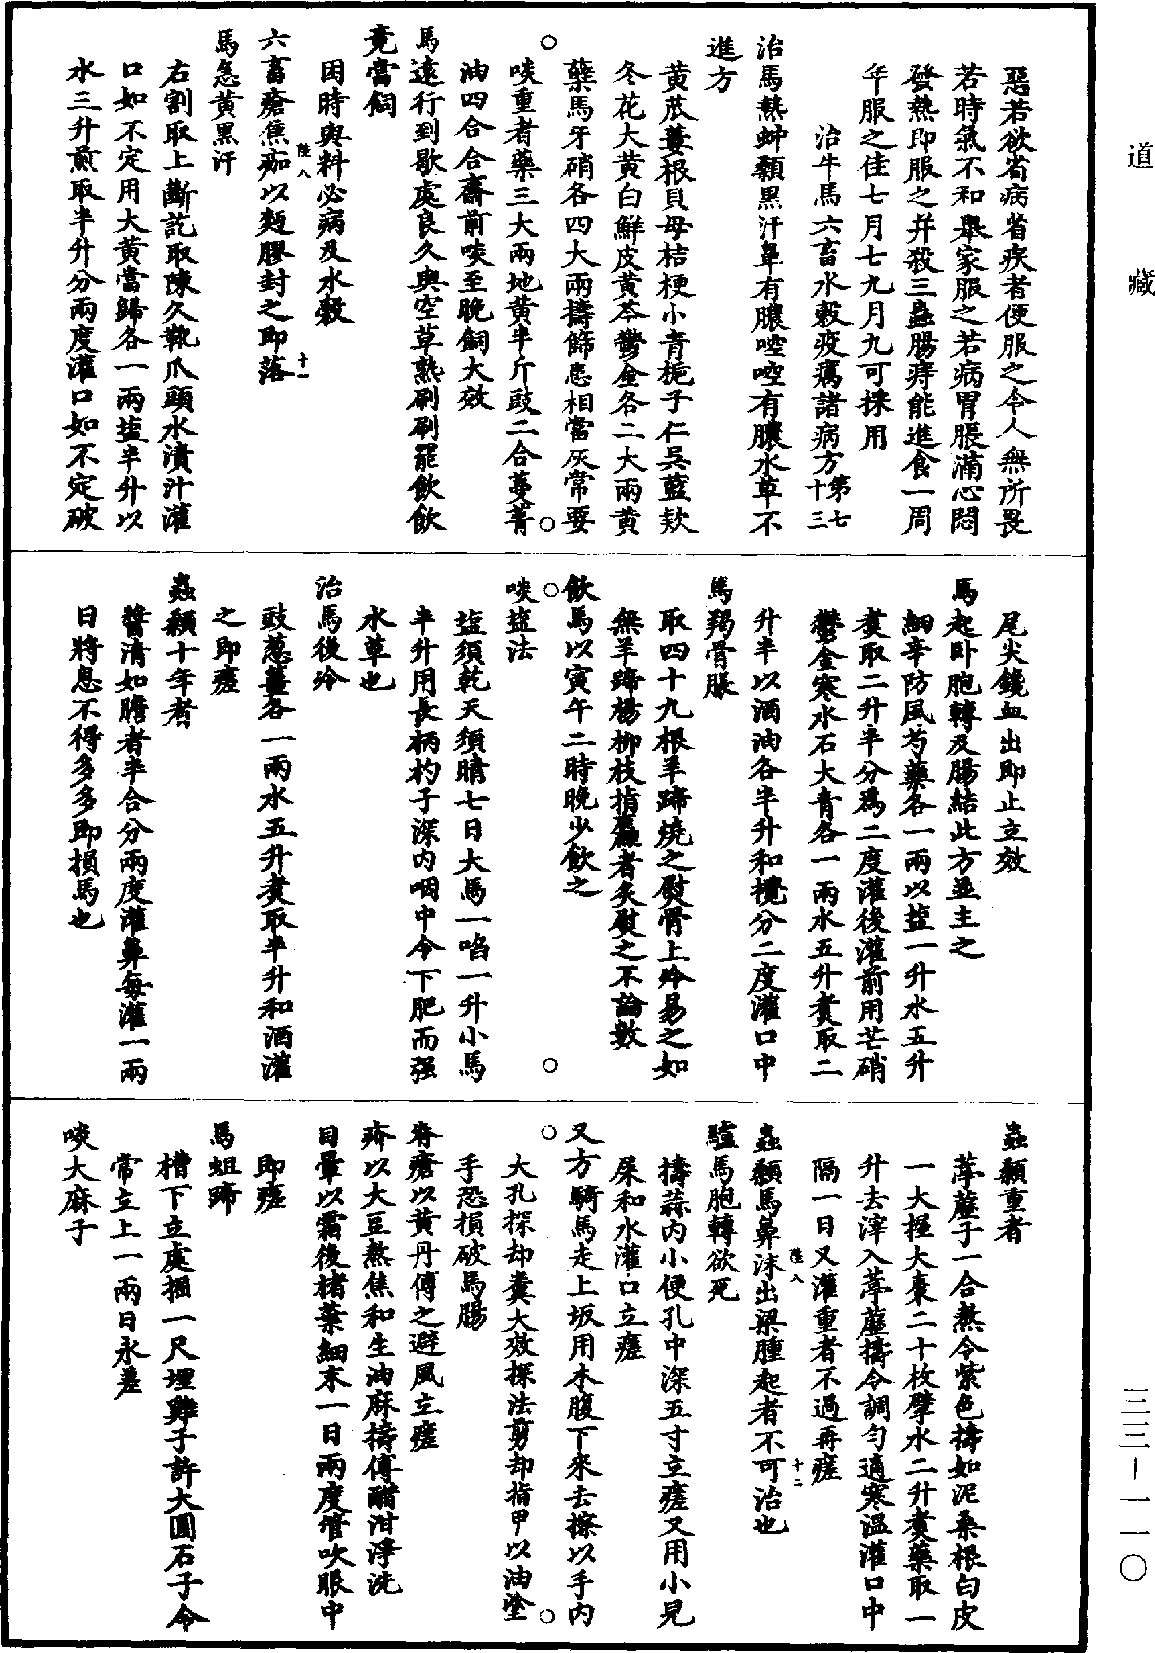 道藏
惡若欲省病省疾者便服之令人無所畏
若時氣不和舉家服之若病胃脹滿心悶
發熱即服之并殺三蟲腸痔能進食一周
年服之佳七月七九月九可採用
治牛馬六畜水穀疫癘諸病方第七十三
治馬熱蚛顙黑汗鼻有膿啌啌有膿水草不
進方
黃苽蔞根貝母桔梗小青梔子仁吳藍欵
冬花大黃白鮮皮黃芩鬱金各二大兩黃
蘗馬牙硝各四大兩擣篩患相當灰常要
啖重者藥三大兩地黃半斤豉二合蔓菁
油四合合齋前啖至晚飼大效
馬遠行到歇處良久與空草熟刷刷罷飲飲
竟當飼
因時與料必病及水穀
陸八
六畜瘡焦痂以麵膠封之即落
十一
馬急黃黑汗
右割取上斷訖取陳久靴爪頭水漬汁灌
口如不定用大黃當歸各一兩塩半升以
水三升煎取半升分兩度灌口如不定破
尾尖鑱血出即止立效
馬起卧胞轉及腸結此方並主之
細辛防風芍藥各一兩以塩一升水五升
煑取二升半分為二度灌後灌前用芒硝
鬱金寒水石大青各一兩水五升煑取二
升半以酒油各半升和攪分二度灌口中
馬羯骨脹
取四十九根羊蹄燒之熨骨上冷易之如
無羊蹄楊柳枝指麄者炙熨之不論數
飲馬以寅午二時晚少飲之
啖塩法
塩須乾天須晴七日大馬一啗一升小馬
半升用長柄杓子深内咽中令下肥而强
水草也
治馬後冷
豉葱薑各一兩水五升煑取半升和酒灌
之即瘥
蟲顙十年者
醬清如膽者半合分兩度灌鼻每灌一兩
日將息不得多多即損馬也
蟲顙重者
葶藶子一合熬令紫色擣如泥桑根白皮
一大握大棗二十枚擘水二升煑藥取一
升去滓入葶藶擣令調勻適寒溫灌口中
隔一日又灌重者不過再瘥
陸八
蟲顙馬鼻沫出梁腫起者不可治也
十二
驢馬胞轉欲死
擣蒜内小便孔中深五寸立瘥又用小兒
屎和水灌口立瘥
又方騎馬走上坂用木腹下來去擦以手内
大孔探却糞大效探法剪却指甲以油塗
手恐損破馬腸
脊瘡以黃丹傅之避風立瘥
疥以大豆熬焦和生油麻擣傅醋泔淨洗
目暈以霜後楮葉細末一日兩度管吹眼中
即瘥
馬蛆蹄
槽下立處掘一尺埋雞子許大圓石子令
常立上一兩日永差
啖大麻子
三三－一一〇